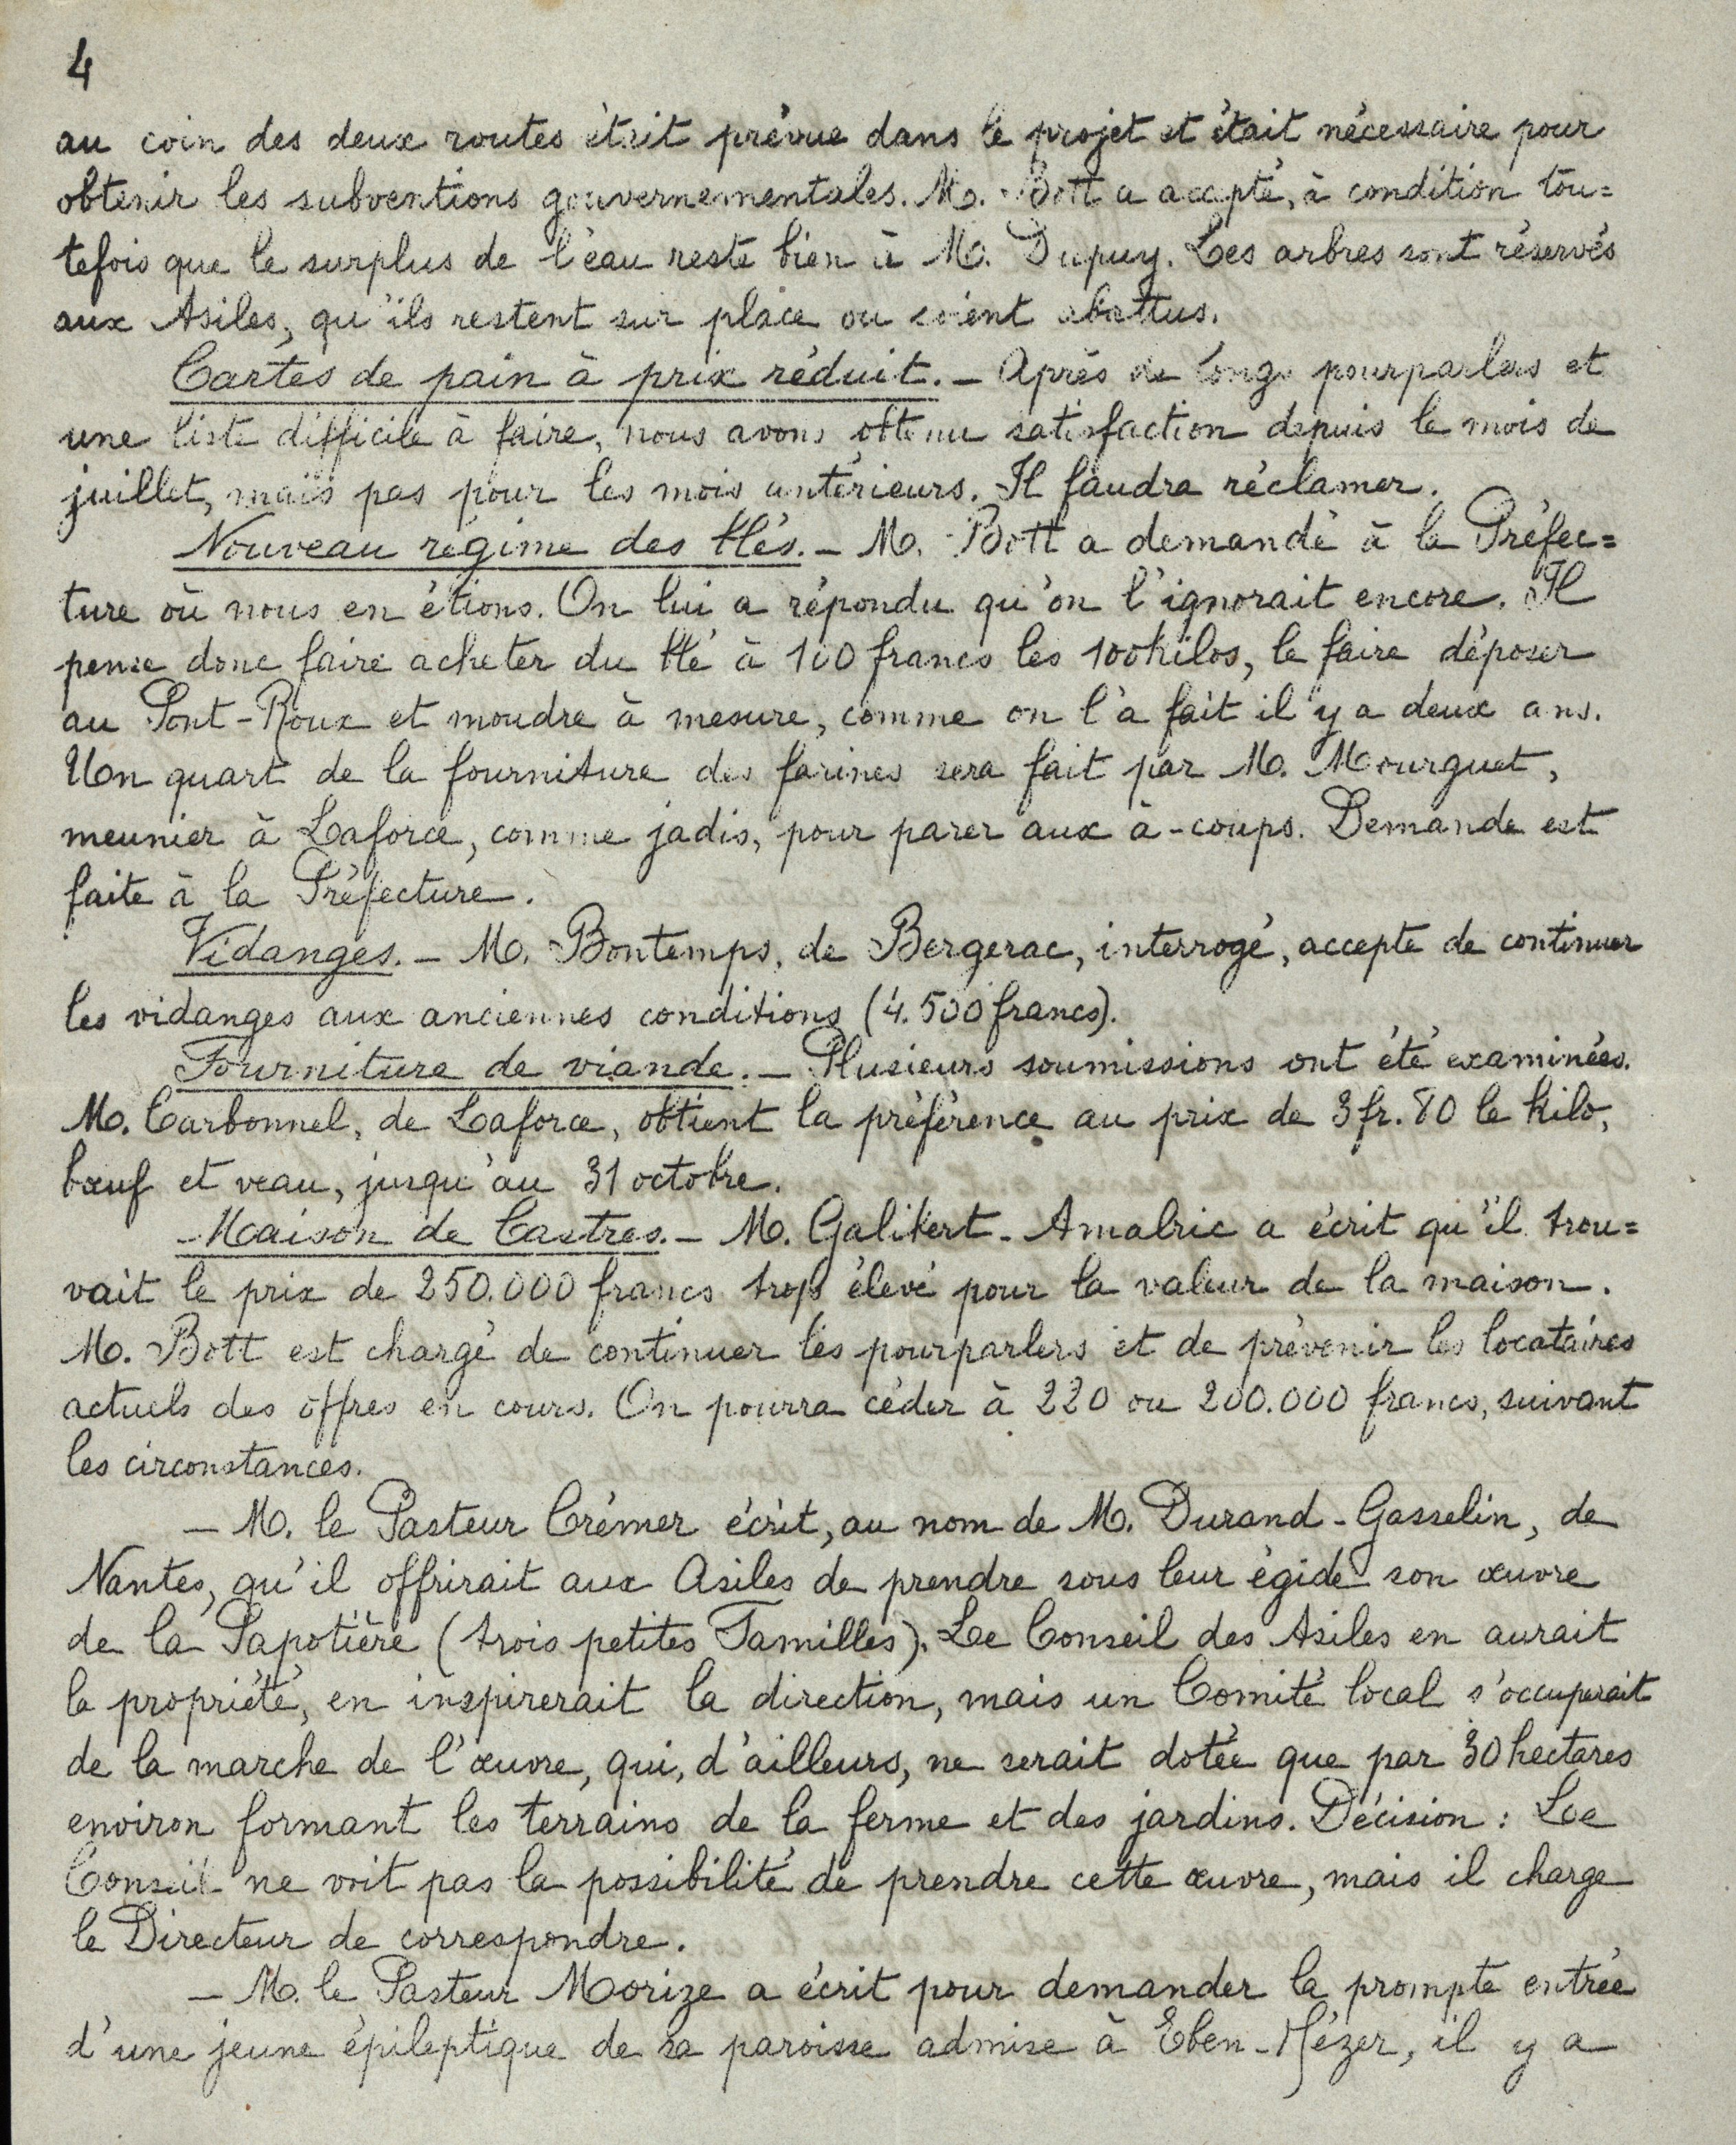 4
au coin des deux routes était prévue dans le projet et était nécessaire pour
obtenir les subventions gouvernementales. M. Bott a accepté, à condition tou=
tefois que le surplus de l'eau reste bien à M. Dupuy. Les arbres sont réservés
aux Asiles, qu'ils restent sur place ou soient abattus.
Cartes de pain à prix réduit. – Après de longs pourparlers et
une liste difficile à faire, nous avons obtenu satisfaction depuis le mois de
juillet, mais pas pour les mois antérieurs. Il faudra réclamer.
Nouveau régime des blés. – M. Bott a demandé à la Préfec=
ture où nous en étions. On lui a répondu qu'on l'ignorait encore. Il
pense donc faire acheter du blé à 100 francs les 100 kilos, le faire déposer
au Pont-Roux et moudre à mesure, comme on l'a fait il y a deux ans.
Un quart de la fourniture des farines sera fait par M. Mourguet,
meunier à Laforce, comme jadis, pour parer aux à-coups. Demande est
faite à la Préfecture.
Vidanges. – M. Bontemps, de Bergerac, interrogé, accepte de continuer
les vidanges aux anciennes conditions (4.500 francs).
Fourniture de viande. – Plusieurs soumissions ont été examinées.
M. Carbonnel, de Laforce, obtient la préférence au prix de 3 fr. 80 le kilo,
bœuf et veau, jusqu'au 31 octobre.
Maison de Castres. – M. Galibert-Amalric a écrit qu'il trou=
vait le prix de 250.000 francs trop élevé pour la valeur de la maison.
M. Bott est chargé de continuer les pourparlers et de prévenir les locataires
actuels des offres en cours. On pourra céder à 220 ou 200.000 francs, suivant
les circonstances.
– M. le Pasteur Crémer écrit, au nom de M. Durand-Gasselin, de
Nantes, qu'il offrirait aux Asiles de prendre sous leur égide son œuvre
de la Papotière (trois petites Familles). Le Conseil des Asiles en aurait
la propriété, en inspirerait la direction, mais un Comité local s'occuperait
de la marche de l'œuvre, qui, d'ailleurs, ne serait dotée que par 30 hectares
environ formant les terrains de la ferme et des jardins. Décision : Le
Conseil ne voit pas la possibilité de prendre cette œuvre, mais il charge
le Directeur de correspondre.
– M. le Pasteur Morize a écrit pour demander la prompte entrée
d'une jeune épileptique de sa paroisse admise à Eben-Hézer, il y a